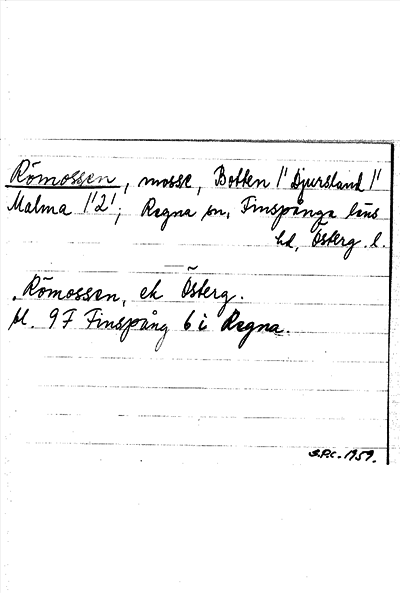 Römossen, mosse, Botten /' Djursland /'
Malma /'2/'; Regna sn, Finspånga läns
hd, Österg. l.
Römossen, ek Österg.
bl. 9F Finspång 6 i Regna.
S.P.C. 1959.